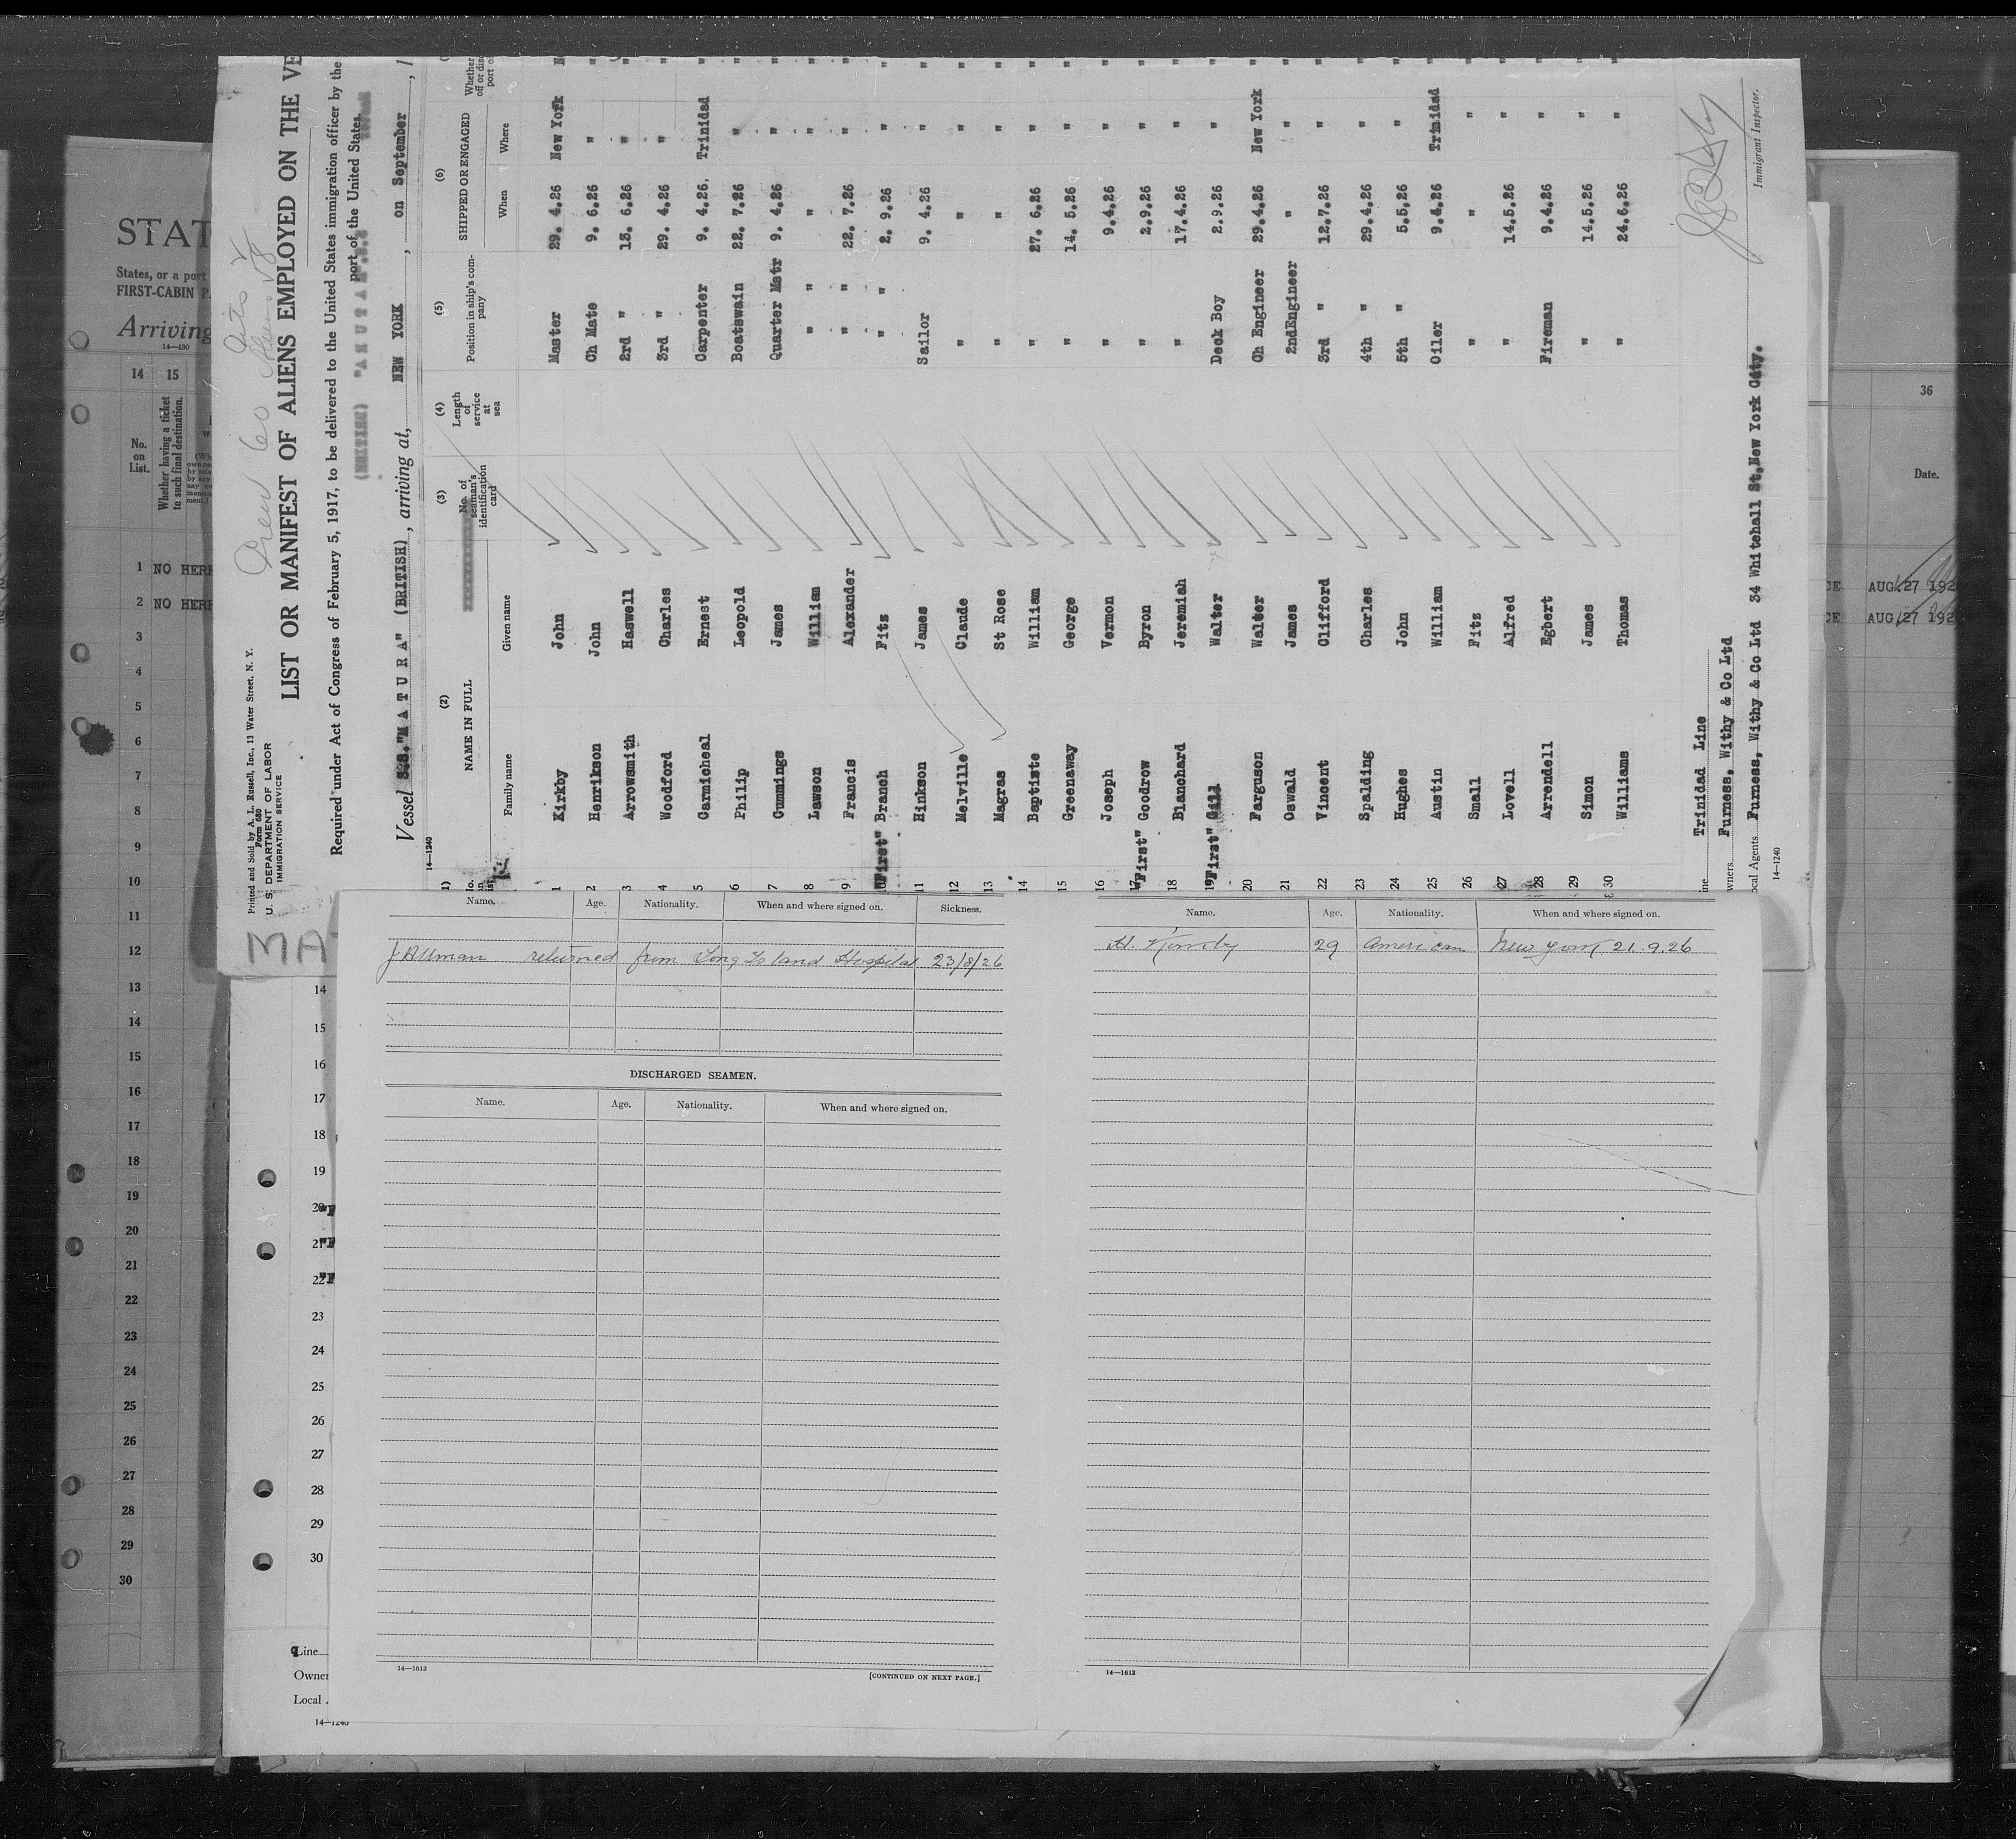 Printed and Sold by A. L. Russell, Inc., 13 Water Street, N. Y.
Form 680
U. S. DEPARTMENT OF LABOR
IMMIGRATION SERVICE
LIST OR MANIFEST OF ALIENS EMPLOYED ON THE VE
Required under Act of Congress of February 5, 1917, to be delivered to the United States immigration officer by the
port of the United States.
Vessel S.S. "M A T U R A" (BRITISH), arriving at, NEW YORK, on September, 1
14—1240
(2) (3) (4) (5) (6)
NAME IN FULL No. of seaman's identification card Length of service at sea Position in ship's company SHIPPED OR ENGAGED
Family name Given name When Where
1 Kirby John Master 29. 4.26 New York
2 Henrikson John Ch Mate 9. 6.26 "
3 Arrowsmith Haswell 2rd " 13. 6.26 "
4 Woodford Charles 3rd " 29. 4.26 "
5 Carmicheal Ernest Carpenter 9. 4.26. Trinidad
6 Philip Leopold Boatswain 22. 7.26 "
7 Cummings James Quarter Matr 9. 4.26 "
8 Lawson William " " " "
9 Francis Alexander " " 22. 7.26 "
"First" Branch Fitz " " 2. 9.26 "
11 Hinkson James Sailor 9. 4.26 "
12 Melville Claude " " "
13 Magras St Rose " " "
14 Baptiste William " 27. 6.26 "
15 Greenaway George " 14. 5.26 "
16 Joseph Vermon " 9.4.26 "
17 "First" Goodrow Byron " 2.9.26 "
18 Blanchard Jeremiah " 17.4.26 "
19 "First" Gill Walter Deck Boy 2.9.26 "
20 Farguson Walter Ch Engineer 29.4.26 New York
21 Oswald James 2ndEngineer " "
22 Vincent Clifford 3rd " 12.7.26 "
23 Spalding Charles 4th " 29.4.26 "
24 Hughes John 5th " 5.5.26 "
25 Austin William Oiler 9.4.26 Trinidad
26 Small Fitz " " "
27 Lovell Alfred " 14.5.26 "
28 Arrendell Egbert Fireman 9.4.26 "
29 Simon James " 14.5.26 "
30 Williams Thomas " 24.6.26 "
Trinidad Line
Furness, Withy & Co Ltd
Local Agents Furness, Withy & Co Ltd 34 Whitehall St, New York City.
14—1240
Immigrant Inspector.
Name. Age. Nationality. When and where signed on. Sickness.
J Allman returned from Long Island Hospital 23/8/26
DISCHARGED SEAMEN.
Name. Age. Nationality. When and where signed on.
14—1613
[CONTINUED ON NEXT PAGE.]
Name. Age. Nationality. When and where signed on.
29 American New York 21.9.26
14—1613
STAT
States, or a port
FIRST-CABIN P
Arriving
14—430
14 15
No. on List.
Whether having a ticket to such final destination.
1 NO HERE
2 NO HERE
3
4
5
6
7
8
9
10
11
12
13
14
15
16
17
18
19
20
21
22
23
24
25
26
27
28
29
30
MAT
14
15
16
17
18
19
20
21
22
23
24
25
26
27
28
29
30
Line
Owner
Local
14—1240
36
Date.
CE AUG 27 192
CE AUG 27 192